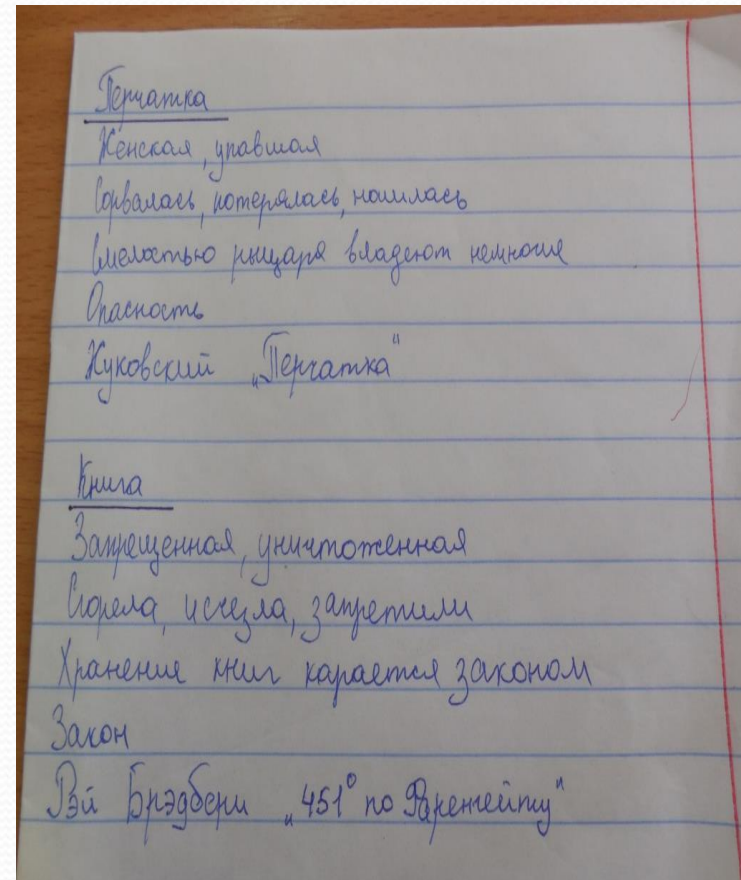 Перчатка
Женская, упавшая
Сорвалась, потерялась, нашлась
Смелостью рыцаря владеют немногие
Опасность
Жуковский „Перчатка"
Книга
Запрещенная, уничтоженная
Сгорела, исчезла, запретили
Хранение книг карается законом
Закон
Рэй Брэдбери „451° по Фаренгейту"